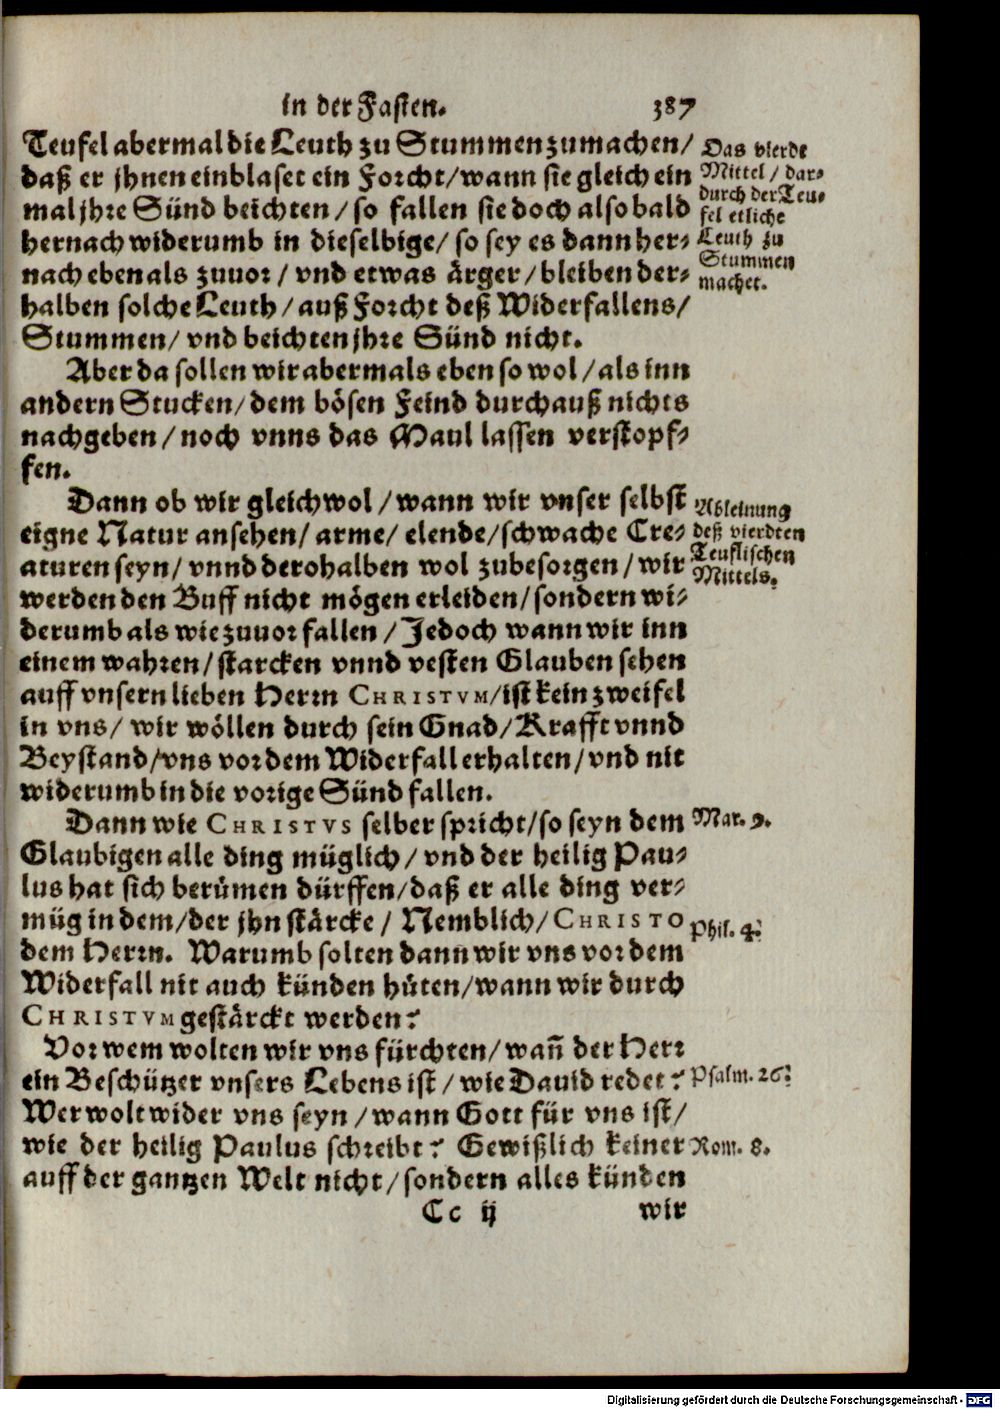 in der Fasten. 387
Teufel abermal die Leuth zu Stummen zumachen/
daß er jhnen einblaset ein Forcht/wann sie gleich ein
mal jhre Sünd beichten/so fallen sie doch also bald
hernach widerumb in dieselbige/so sey es dann her-
nach eben als zuuor/vnd etwas ärger/bleiben der-
halben solche Leuth/auß Forcht deß Widerfallens/
Stummen/vnd beichten jhre Sünd nicht.
Das vierde
Mittel/dar-
durch der Teu-
fel etliche
Leuth zu
Stummen
machet.
Aber da sollen wir abermals eben so wol/als inn
andern Stucken/dem bösen Feind durchauß nichts
nachgeben/noch vnns das Maul lassen verstopf-
fen.
Dann ob wir gleichwol/wann wir vnser selbst
eigne Natur ansehen/arme/elende/schwache Cre-
aturen seyn/vnnd derohalben wol zubesorgen/wir
werden den Buff nicht mögen erleiden/sondern wi-
derumb als wie zuuor fallen/Jedoch wann wir inn
einem wahren/starcken vnnd vesten Glauben sehen
auff vnsern lieben Herrn CHRISTVM/ist kein zweifel
in vns/wir wöllen durch sein Gnad/Krafft vnnd
Beystand/vns vor dem Widerfall erhalten/vnd nit
widerumb in die vorige Sünd fallen.
Ableinung
deß vierdten
Teuflischen
Mittels.
Dann wie CHRISTVS selber spricht/so seyn dem
Glaubigen alle ding müglich/vnd der heilig Pau-
lus hat sich berümen dürffen/daß er alle ding ver-
müg in dem/der jhn stärcke/Nemblich/CHRISTO
dem Herrn. Warumb solten dann wir vns vor dem
Widerfall nit auch künden hüten/wann wir durch
CHRISTVM gestärckt werden?
Mar. 9.
Phil. 4.
Vor wem wolten wir vns fürchten/wañ der Herr
ein Beschützer vnsers Lebens ist/wie Dauid redet?
Wer wolt wider vns seyn/wann Gott für vns ist/
wie der heilig Paulus schreibt? Gewißlich keiner
auff der gantzen Welt nicht/sondern alles künden
Psalm. 26.
Rom. 8.
Cc ij wir
Digitalisierung gefördert durch die Deutsche Forschungsgemeinschaft - DFG